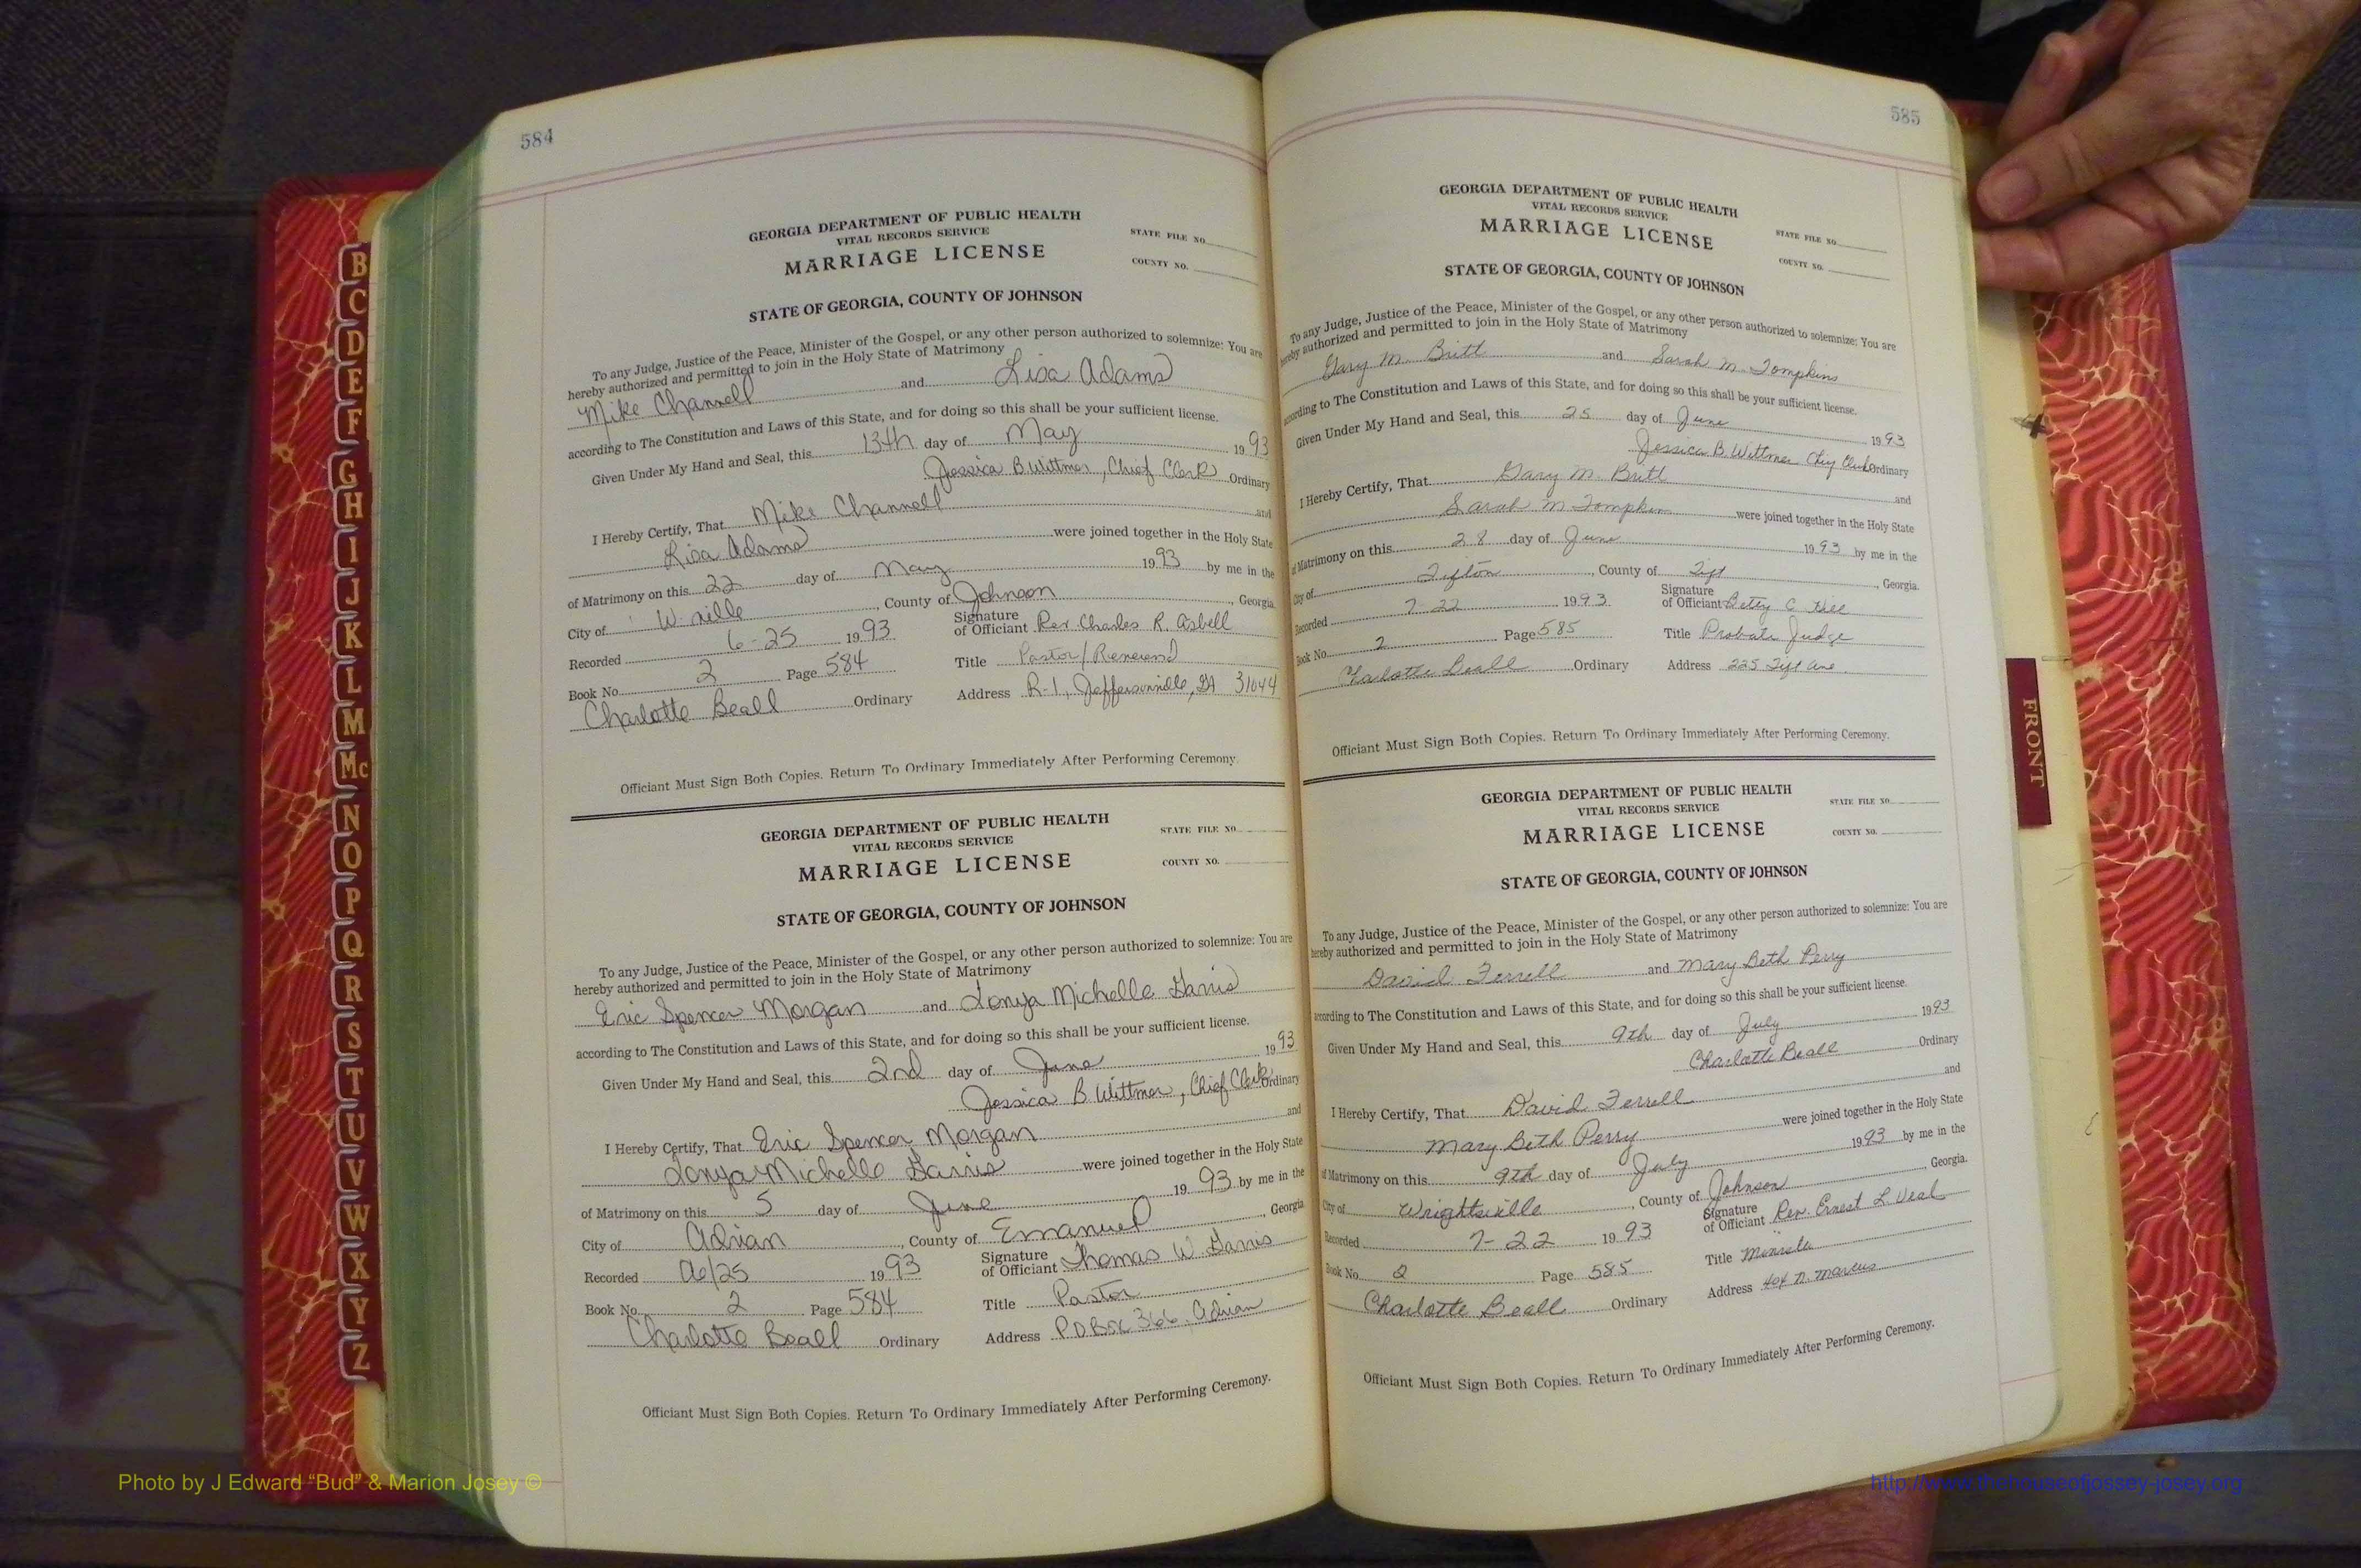 584
GEORGIA DEPARTMENT OF PUBLIC HEALTH
VITAL RECORDS SERVICE
MARRIAGE LICENSE
STATE FILE NO.
COUNTY NO.
STATE OF GEORGIA, COUNTY OF JOHNSON
To any Judge, Justice of the Peace, Minister of the Gospel, or any other person authorized to solemnize: You are
hereby authorized and permitted to join in the Holy State of Matrimony
Mike Channell and Lisa Adams
according to The Constitution and Laws of this State, and for doing so this shall be your sufficient license.
Given Under My Hand and Seal, this 13th day of May 1993
Jessica B Wittmer, Chief Clerk Ordinary
I Hereby Certify, That Mike Channell and
Lisa Adams were joined together in the Holy State
of Matrimony on this 22 day of May 1993 by me in the
City of W-ville, County of Johnson, Georgia
Recorded 6-25 1993 Signature of Officiant Rev Charles R. Asbell
Book No. 2 Page 584 Title Pastor/Reverend
Charlotte Beall Ordinary Address R-1, Jeffersonville, GA 31044
Officiant Must Sign Both Copies. Return To Ordinary Immediately After Performing Ceremony.
GEORGIA DEPARTMENT OF PUBLIC HEALTH
VITAL RECORDS SERVICE
MARRIAGE LICENSE
STATE FILE NO.
COUNTY NO.
STATE OF GEORGIA, COUNTY OF JOHNSON
To any Judge, Justice of the Peace, Minister of the Gospel, or any other person authorized to solemnize: You are
hereby authorized and permitted to join in the Holy State of Matrimony
Eric Spencer Morgan and Tonya Michelle Harris
according to The Constitution and Laws of this State, and for doing so this shall be your sufficient license.
Given Under My Hand and Seal, this 2nd day of June 1993
Jessica B Wittmer, Chief Clerk Ordinary
I Hereby Certify, That Eric Spencer Morgan and
Tonya Michelle Harris were joined together in the Holy State
of Matrimony on this 5 day of June 1993 by me in the
City of Adrian, County of Emanuel, Georgia
Recorded 06/25 1993 Signature of Officiant Thomas W. Harris
Book No. 2 Page 584 Title Pastor
Charlotte Beall Ordinary Address P.O Box 366, Adrian
Officiant Must Sign Both Copies. Return To Ordinary Immediately After Performing Ceremony.
585
GEORGIA DEPARTMENT OF PUBLIC HEALTH
VITAL RECORDS SERVICE
MARRIAGE LICENSE
STATE FILE NO.
COUNTY NO.
STATE OF GEORGIA, COUNTY OF JOHNSON
To any Judge, Justice of the Peace, Minister of the Gospel, or any other person authorized to solemnize: You are
hereby authorized and permitted to join in the Holy State of Matrimony
Gary M. Britt and Sarah M. Tompkins
according to The Constitution and Laws of this State, and for doing so this shall be your sufficient license.
Given Under My Hand and Seal, this 25 day of June 1993
Jessica B. Wittmer Ordinary
I Hereby Certify, That Gary M. Britt and
Sarah M Tompkins were joined together in the Holy State
of Matrimony on this 28 day of June 1993 by me in the
City of Tifton, County of Tift, Georgia.
Recorded 7-22 1993 Signature of Officiant Betty C Hill
Book No. 2 Page 585 Title Probate Judge
Charlotte Beall Ordinary Address 225 Tift Ave
Officiant Must Sign Both Copies. Return To Ordinary Immediately After Performing Ceremony.
GEORGIA DEPARTMENT OF PUBLIC HEALTH
VITAL RECORDS SERVICE
MARRIAGE LICENSE
STATE FILE NO.
COUNTY NO.
STATE OF GEORGIA, COUNTY OF JOHNSON
To any Judge, Justice of the Peace, Minister of the Gospel, or any other person authorized to solemnize: You are
hereby authorized and permitted to join in the Holy State of Matrimony
David Ferrell and Mary Beth Perry
according to The Constitution and Laws of this State, and for doing so this shall be your sufficient license.
Given Under My Hand and Seal, this 9th day of July 1993
Charlotte Beall Ordinary
I Hereby Certify, That David Ferrell and
Mary Beth Perry were joined together in the Holy State
of Matrimony on this 9th day of July 1993 by me in the
City of Wrightsville, County of Johnson, Georgia.
Recorded 7-22 1993 Signature of Officiant Rev. Ernest L. Veal
Book No. 2 Page 585 Title
Charlotte Beall Ordinary Address 404 N. Marcus
Officiant Must Sign Both Copies. Return To Ordinary Immediately After Performing Ceremony.
B
C
D
E
F
G
H
I
J
K
L
M
Mc
N
O
P
Q
R
S
T
U
V
W
X
Y
Z
FRONT
Photo by J Edward “Bud” & Marion Josey ©
http://www.thehouseofjossey-josey.org